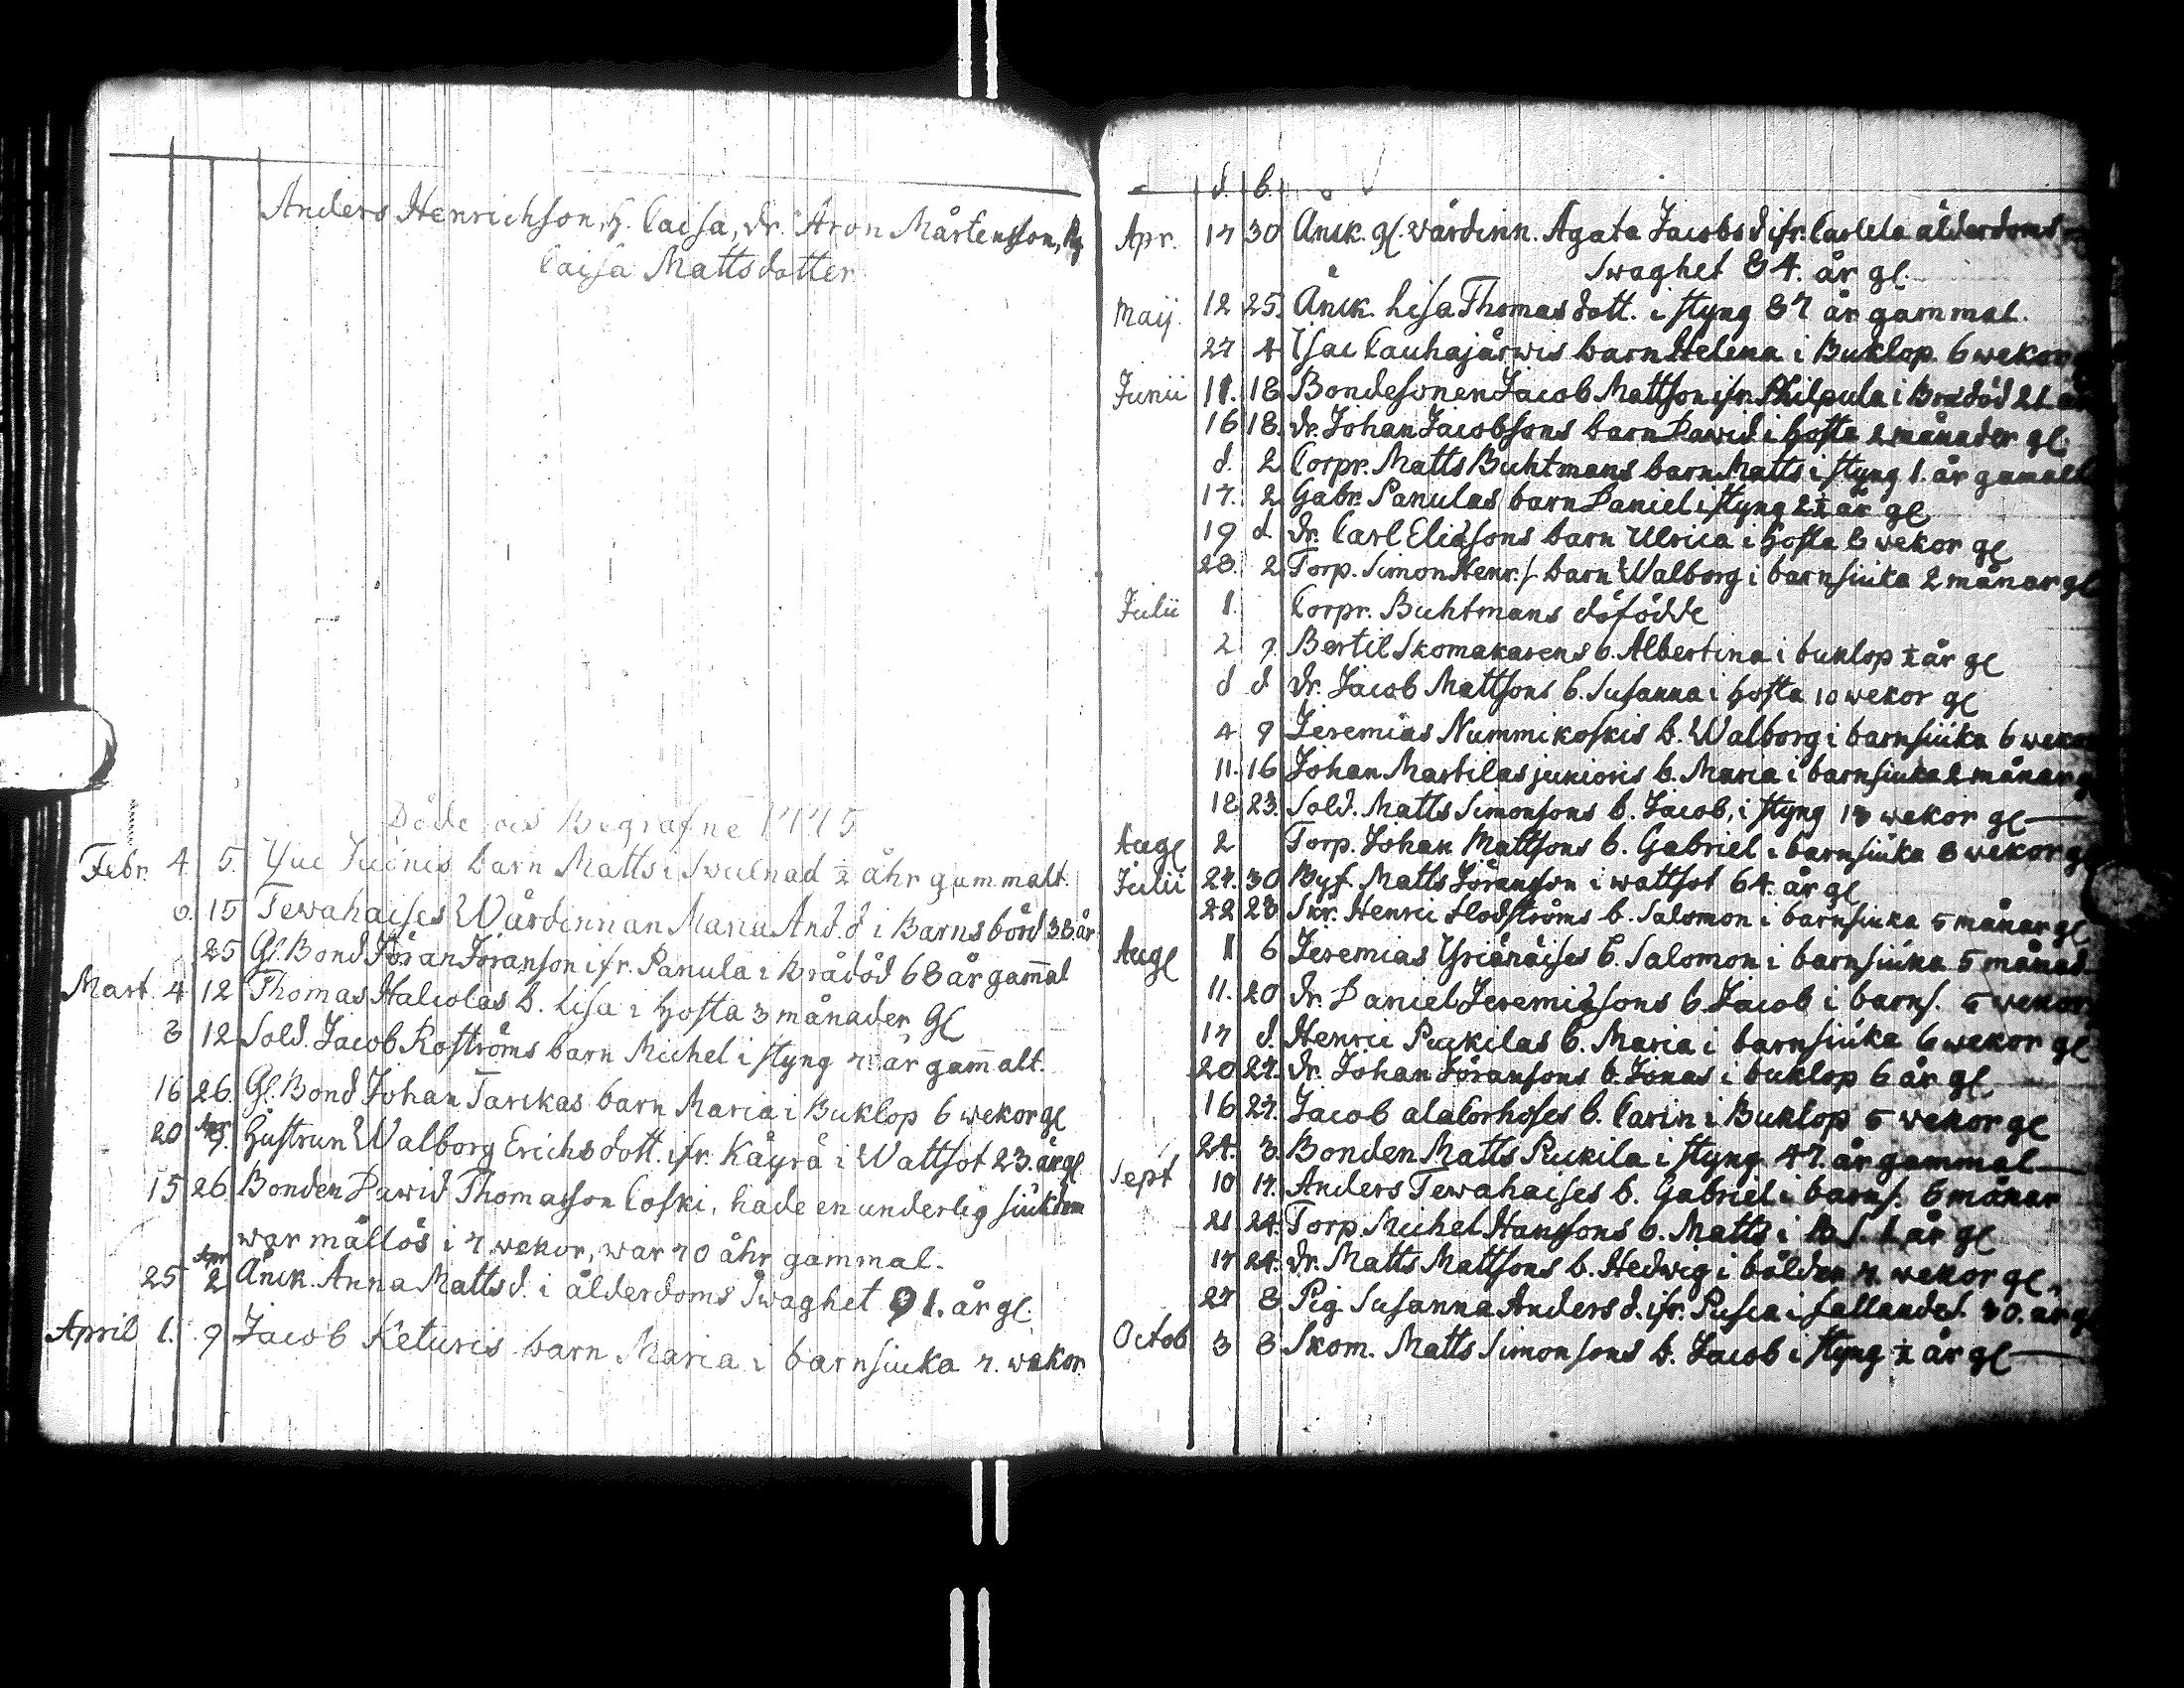 Anders Henrichson, H. Caisa, dr. Aron Mårtensson, Pig
Caisa Mattsdotter
Döde och Begrafne 1775
Febr. 4 5. barn Matts i Swulnad ½ åhr gammalt.
6. 15 Tewahaises Wärdinnan Maria And.d i Barnsbörd 38 år
25 Gl. Bond Jöran Jöranson ifr. Panula i Brådöd 68 år gam̅al
Mart. 4 12 Thomas Hakolas b. Lisa i Hosta 3 månader gl
8 12 Sold. Jacob Roströms barn Michel i styng 7. år gam̅alt.
16 26. Gl. Bond Johan Tarckas barn Maria i Buklop 6 wekor gl
20 Apr. 9. Hustrun Walborg Erichsdott. ifr. Käyrä i Wattsot 23. år gl
15 26 Bonden Dawid Thomasson Coski, hade en underlig siukdom
war mållös i 7 wekor, war 70 åhr gammal.
25 Apr 2 Änck. Anna Mattsd. i ålderdoms Swaghet 91. år gl.
April 1. 9 Jacob Keturis barn Maria i barnsiuka 7. wekor.
d. b.
Apr. 17 30 Änck. gl. wärdinn. Agata Jacobsd ifr. ålderdoms
swaghet 84. år gl.
Maij. 12 25. Änck. Lisa Thomasdott. i styng 87 år gammal.
27 4 Isac Cauhajärwis barn Helena i Buklop. 6 wekor
Junii 11. 18 Bondesonen Jacob Mattson ifr. Philpula i Brådöd 21. år
16 18. dr. Johan Jacobsons barn Dawid i hosta 2 månader gl
d. 2 Corpr. Matts Buhtmans barn Matts i styng 1. år gamalt
17. 2 Gabr. Panulas barn Daniel i styng 2½ år gl
19 d dr. Carl Eliæsons barn Ulrica i hosta 6 wekor gl
28. 2 Torp. Simon Henr.s. barn Walborg i barnsiuka 2 månar gl
Julii 1. Corpr. Buhtmans döfödde
2. 9. Bertil Skomakarens b. Albertina i buklop ½ år gl
d d dr. Jacob Mattsons b. Susanna i hosta 10 wekor gl
4 9 Jeremias Nummikoskis b. Walborg i barnsiuka 6 wekor
11. 16 Johan Martilas junioris b. Maria i barnsiuka 2 månar g
18 23. Sold. Matts Simonsons b. Jacob, i styng 18 wekor gl
Aug 2 Torp. Johan Mattsons b. Gabriel i barnsiuka 8 wekor g
Julii 27. 30 Bys. Matts Jöransson i wattsot 64. år gl
22 23 Skr. Henric Flodströms b. Salomon i barnsiuka 5 månar gl
Aug 1 6 Jeremias Yrjänäises b. Salomon i barnsiuka 5 månad.
11. 20 dr. Daniel Jeremiæsons b. Jacob i barns. 5 wekor
17 d. Henric Puckilas b. Maria i barnsiuka 6 wekor gl
20 27. dr. Johan Jöransons b. Jonas i buklop 6 år gl
16 27. Jacob alaCorhoses b. Carin i Buklop 5 wekor gl
24. 3. Bonden Matts Puckila i styng 47. år gammal
Sept 10 17. Anders Tewahaises b. Gabriel i barns. 6 månar
21 24. Torp. Michel Hanssons b. Matts i B.S. 1 år gl
17 24. dr. Matts Mattsons b. Hedwig i bölder 7. wekor gl.
27 8 Pig. Susanna Anders d. ifr. i fallandes. 30. år g
Octob 3 8 Skom. Matts Simonsons b. Jacob i styng ½ år gl